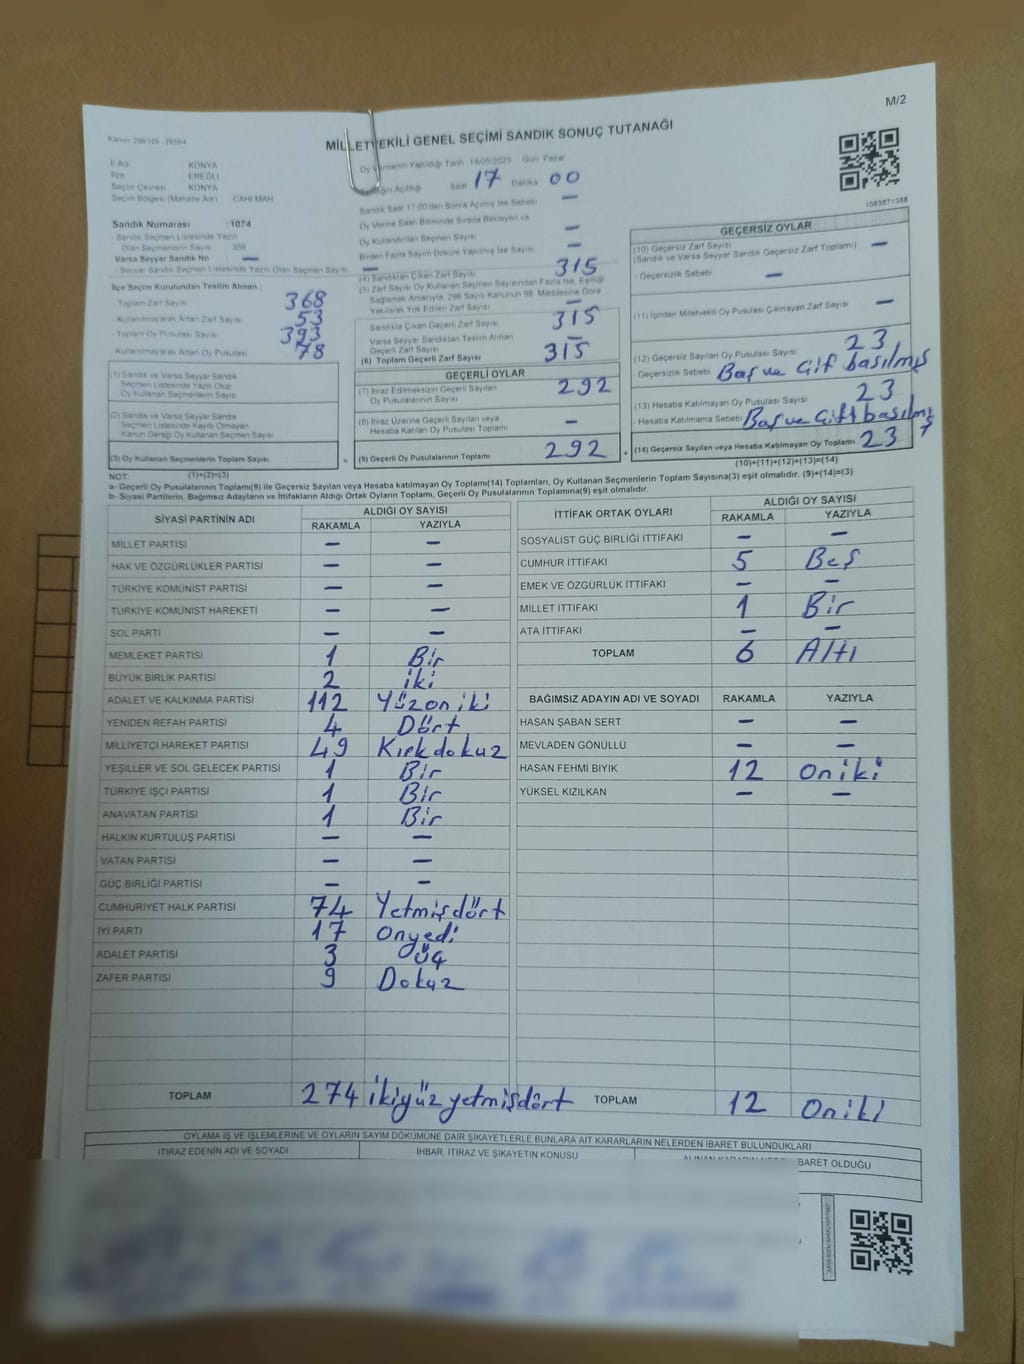 M/2
Kanun: 298/105 , 2839/4
MİLLETVEKİLİ GENEL SEÇİMİ SANDIK SONUÇ TUTANAĞI
İl Adı KONYA
İlçe EREĞLİ
Seçim Çevresi KONYA
Seçim Bölgesi (Mahalle Adı) CAHI MAH
Sandık Numarası :1074
Sandık Seçmen Listesinde Yazılı
Olan Seçmenlerin Sayısı 358
Varsa Seyyar Sandık No —
Seyyar Sandık Seçmen Listesinde Yazılı Olan Seçmen Sayısı —
İlçe Seçim Kurulundan Teslim Alınan :
- Toplam Zarf Sayısı 368
- Kullanılmayarak Artan Zarf Sayısı 53
- Toplam Oy Pusulası Sayısı 393
- Kullanılmayarak Artan Oy Pusulası 78
(1) Sandık ve Varsa Seyyar Sandık
Seçmen Listesinde Yazılı Olup
Oy Kullanan Seçmenlerin Sayısı
(2) Sandık ve Varsa Seyyar Sandık
Seçmen Listesinde Kayıtlı Olmayan
Kanun Gereği Oy Kullanan Seçmen Sayısı
(3) Oy Kullanan Seçmenlerin Toplam Sayısı
(1)+(2)=(3)
Oy Vermenin Yapıldığı Tarih 14/05/2023 Gün: Pazar
Sandığın Açıldığı Saat 17 Dakika 00
Sandık Saat 17:00'den Sonra Açılmış İse Sebebi —
Oy Verme Saati Bitiminde Sırada Bekleyen ve
Oy Kullandırılan Seçmen Sayısı —
Birden Fazla Sayım Döküm Yapılmış İse Sayısı —
(4) Sandıktan Çıkan Zarf Sayısı 315
(5) Zarf Sayısı Oy Kullanan Seçmen Sayısından Fazla İse, Eşitliği
Sağlamak Amacıyla, 298 Sayılı Kanunun 98. Maddesine Göre
Yakılarak Yok Edilen Zarf Sayısı —
Sandıkta Çıkan Geçerli Zarf Sayısı 315
Varsa Seyyar Sandıktan Teslim Alınan
Geçerli Zarf Sayısı —
(6) Toplam Geçerli Zarf Sayısı 315
GEÇERLİ OYLAR
(7) İtiraz Edilmeksizin Geçerli Sayılan
Oy Pusulalarının Sayısı 292
(8) İtiraz Üzerine Geçerli Sayılan veya
Hesaba Katılan Oy Pusulası Toplamı —
= (9) Geçerli Oy Pusulalarının Toplamı 292 +
1083871388
GEÇERSİZ OYLAR
(10) Geçersiz Zarf Sayısı
(Sandık ve Varsa Seyyar Sandık Geçersiz Zarf Toplamı) —
- Geçersizlik Sebebi —
(11) İçinden Milletvekili Oy Pusulası Çıkmayan Zarf Sayısı —
(12) Geçersiz Sayılan Oy Pusulası Sayısı 23
- Geçersizlik Sebebi Boş ve Çift basılmış
(13) Hesaba Katılmayan Oy Pusulası Sayısı 23
- Hesaba Katılmama Sebebi Boş ve Çift basılmış
(14) Geçersiz Sayılan veya Hesaba Katılmayan Oy Toplamı 23
(10)+(11)+(12)+(13)=(14)
NOT:
a- Geçerli Oy Pusulalarının Toplamı(9) ile Geçersiz Sayılan veya Hesaba katılmayan Oy Toplamı(14) Toplamları, Oy Kullanan Seçmenlerin Toplam Sayısına(3) eşit olmalıdır. (9)+(14)=(3)
b- Siyasi Partilerin, Bağımsız Adayların ve İttifakların Aldığı Ortak Oyların Toplamı, Geçerli Oy Pusulalarının Toplamına(9) eşit olmalıdır.
SİYASİ PARTİNİN ADI ALDIĞI OY SAYISI
RAKAMLA YAZIYLA
MİLLET PARTİSİ — —
HAK VE ÖZGÜRLÜKLER PARTİSİ — —
TÜRKİYE KOMÜNİST PARTİSİ — —
TÜRKİYE KOMÜNİST HAREKETİ — —
SOL PARTİ — —
MEMLEKET PARTİSİ 1 Bir
BÜYÜK BİRLİK PARTİSİ 2 iki
ADALET VE KALKINMA PARTİSİ 112 Yüzoniki
YENİDEN REFAH PARTİSİ 4 Dört
MİLLİYETÇİ HAREKET PARTİSİ 49 Kırkdokuz
YEŞİLLER VE SOL GELECEK PARTİSİ 1 Bir
TÜRKİYE İŞÇİ PARTİSİ 1 Bir
ANAVATAN PARTİSİ 1 Bir
HALKIN KURTULUŞ PARTİSİ — —
VATAN PARTİSİ — —
GÜÇ BİRLİĞİ PARTİSİ — —
CUMHURİYET HALK PARTİSİ 74 Yetmişdört
İYİ PARTİ 17 Onyedi
ADALET PARTİSİ 3 üç
ZAFER PARTİSİ 9 Dokuz
TOPLAM 274 ikiyüzyetmişdört
İTTİFAK ORTAK OYLARI ALDIĞI OY SAYISI
RAKAMLA YAZIYLA
SOSYALIST GÜÇ BİRLİĞİ İTTİFAKI — —
CUMHUR İTTİFAKI 5 Beş
EMEK VE ÖZGÜRLÜK İTTİFAKI — —
MİLLET İTTİFAKI 1 Bir
ATA İTTİFAKI — —
TOPLAM 6 Altı
BAĞIMSIZ ADAYIN ADI VE SOYADI RAKAMLA YAZIYLA
HASAN ŞABAN SERT — —
MEVLADEN GÖNÜLLÜ — —
HASAN FEHMİ BIYIK 12 oniki
YÜKSEL KIZILKAN — —
TOPLAM 12 Oniki
OYLAMA İŞ VE İŞLEMLERİNE VE OYLARIN SAYIM DÖKÜMÜNE DAİR ŞİKAYETLERLE BUNLARA AİT KARARLARIN NELERDEN İBARET BULUNDUKLARI
İTİRAZ EDENİN ADI VE SOYADI İHBAR, İTİRAZ VE ŞİKAYETİN KONUSU ALINAN KARARIN NEDEN İBARET OLDUĞU